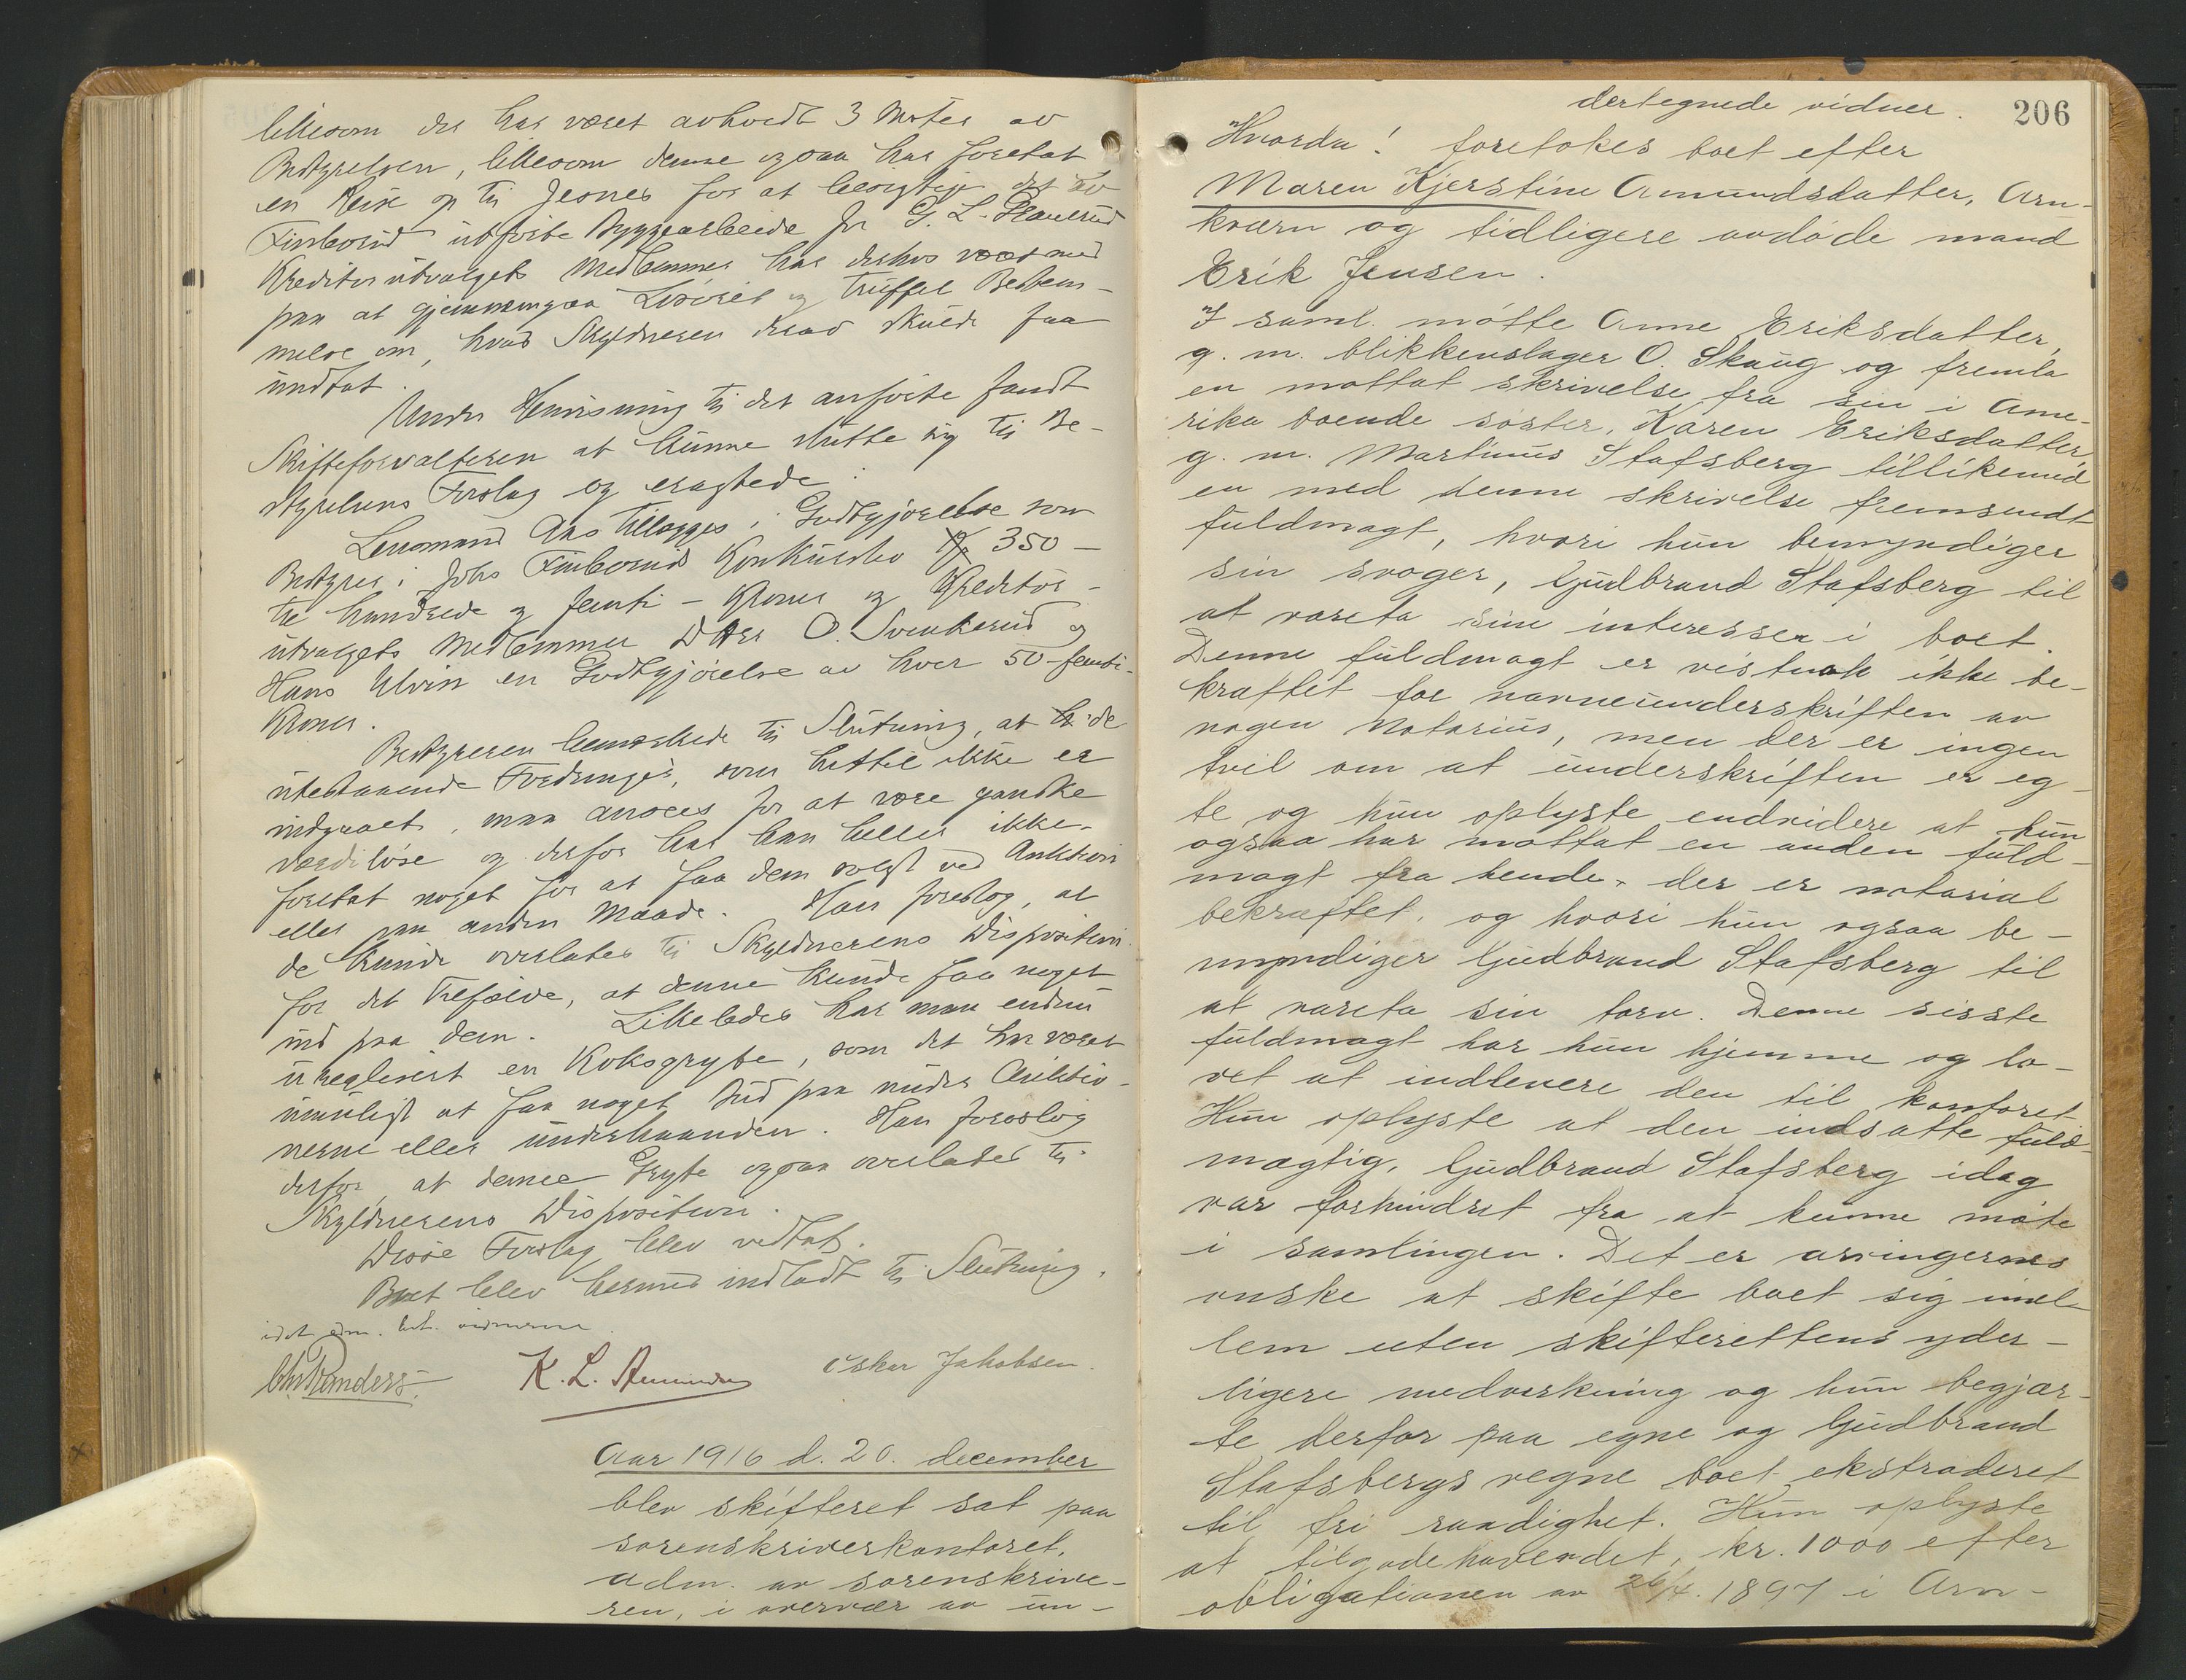 likesom der har været avholdt 3 Møter av
Bestyrelsen, likesom denne ogsaa har foretat
en Reise op til Jesnes for at besigtige det av
Fimborud utførte Byggearbeide for G. L.
Kreditorutvalgets Medlemmer har derhos været med
paa at gjennemgaa Løsøret og truffet Bestem-
melse om, hvad Skyldneren derav skulde faa
undtat.
Under Henvisning til det anførte fandt
Skifteforvalteren at kunne slutte sig til Be-
styrelsens Forslag og eragtede:
Lensmand Aas tillægges i Godtgjørelse som
Bestyrer i Johs Fimboruds Konkursbo Kr 350 -
tre hundrede og femti - Kroner og Kreditor-
utvalgets Medlemmer DHrr O. Svenkerud og
Hans Ulvin en Godtgjørelse av hver 50 - femti -
Kroner.
Bestyreren bemerkede til Slutning, at de
utestaaende Fordringer, som hittil ikke er
indgaaet, maa ansees for at være ganske
værdiløse og derfor har han heller ikke
foretat noget for at faa dem solgt ved Auktion
eller paa anden Maade. Han foreslog, at
de kunde overlates til Skyldnerens Disposition
for det Tilfælde, at denne kunde faa noget
ind paa dem. Likeledes har man endnu
urealisert en Koksgryte, som det har været
umuligt at faa noget Bud paa under Auktio-
nerne eller underhaanden. Han foreslog
derfor, at denne Gryte ogsaa overlates til
Skyldnerens Disposition.
Disse Forslag blev vedtat.
Boet blev hermed indladt til Slutning.
idet adm. bet. vidnerne
Chr Randers. K. L. Amundsen Oskar Jakobsen.
Aar 1916 d. 20. december
blev skifteret sat paa
sorenskriverkontoret,
adm. av sorenskrive-
ren, i overvær av un-
206
dertegnede vidner.
Hvorda! foretokes boet efter
Maren Kjerstine Amundsdatter, Arn-
kværn og tidligere avdøde mand
Erik Jensen.
I saml. møtte Anne Eriksdatter,
g. m. blikkenslager O. Skaug og fremla
en mottat skrivelse fra sin i Ame-
rika boende søster, Karen Eriksdatter,
g. m. Martinus Stafsberg tillikemed
en med denne skrivelse fremsendt
fuldmagt, hvori hun bemyndiger
sin svoger, Gudbrand Stafsberg til
at vareta sine interesser i boet.
Denne fuldmagt er vistnok ikke be-
kræftet for navneunderskriften av
nogen Notarius, men der er ingen
tvil om at underskriften er eg-
te og hun oplyste endvidere at hun
ogsaa har mottat en anden fuld-
magt fra hende, der er notarial
bekræftet, og hvori hun ogsaa be-
myndiger Gudbrand Stafsberg til
at vareta sin tarv. Denne sisste
fuldmagt har hun hjemme og lo-
vet at indlevere den til kontoret.
Hun oplyste at den indsatte fuld-
mægtig, Gudbrand Stafsberg idag
var forhindret fra at kunne møte
i samlingen. Det er arvingernes
ønske at skifte boet sig imel-
lem uten skifterettens yder-
ligere medvirkning og hun begjær-
te derfor paa egne og Gudbrand
Stafsbergs vegne boet ekstraderet
til fri raadighet. Hun oplyste
at tilgodehavendet, kr. 1000 efter
obligationen av 26/4. 1897 i Arn-